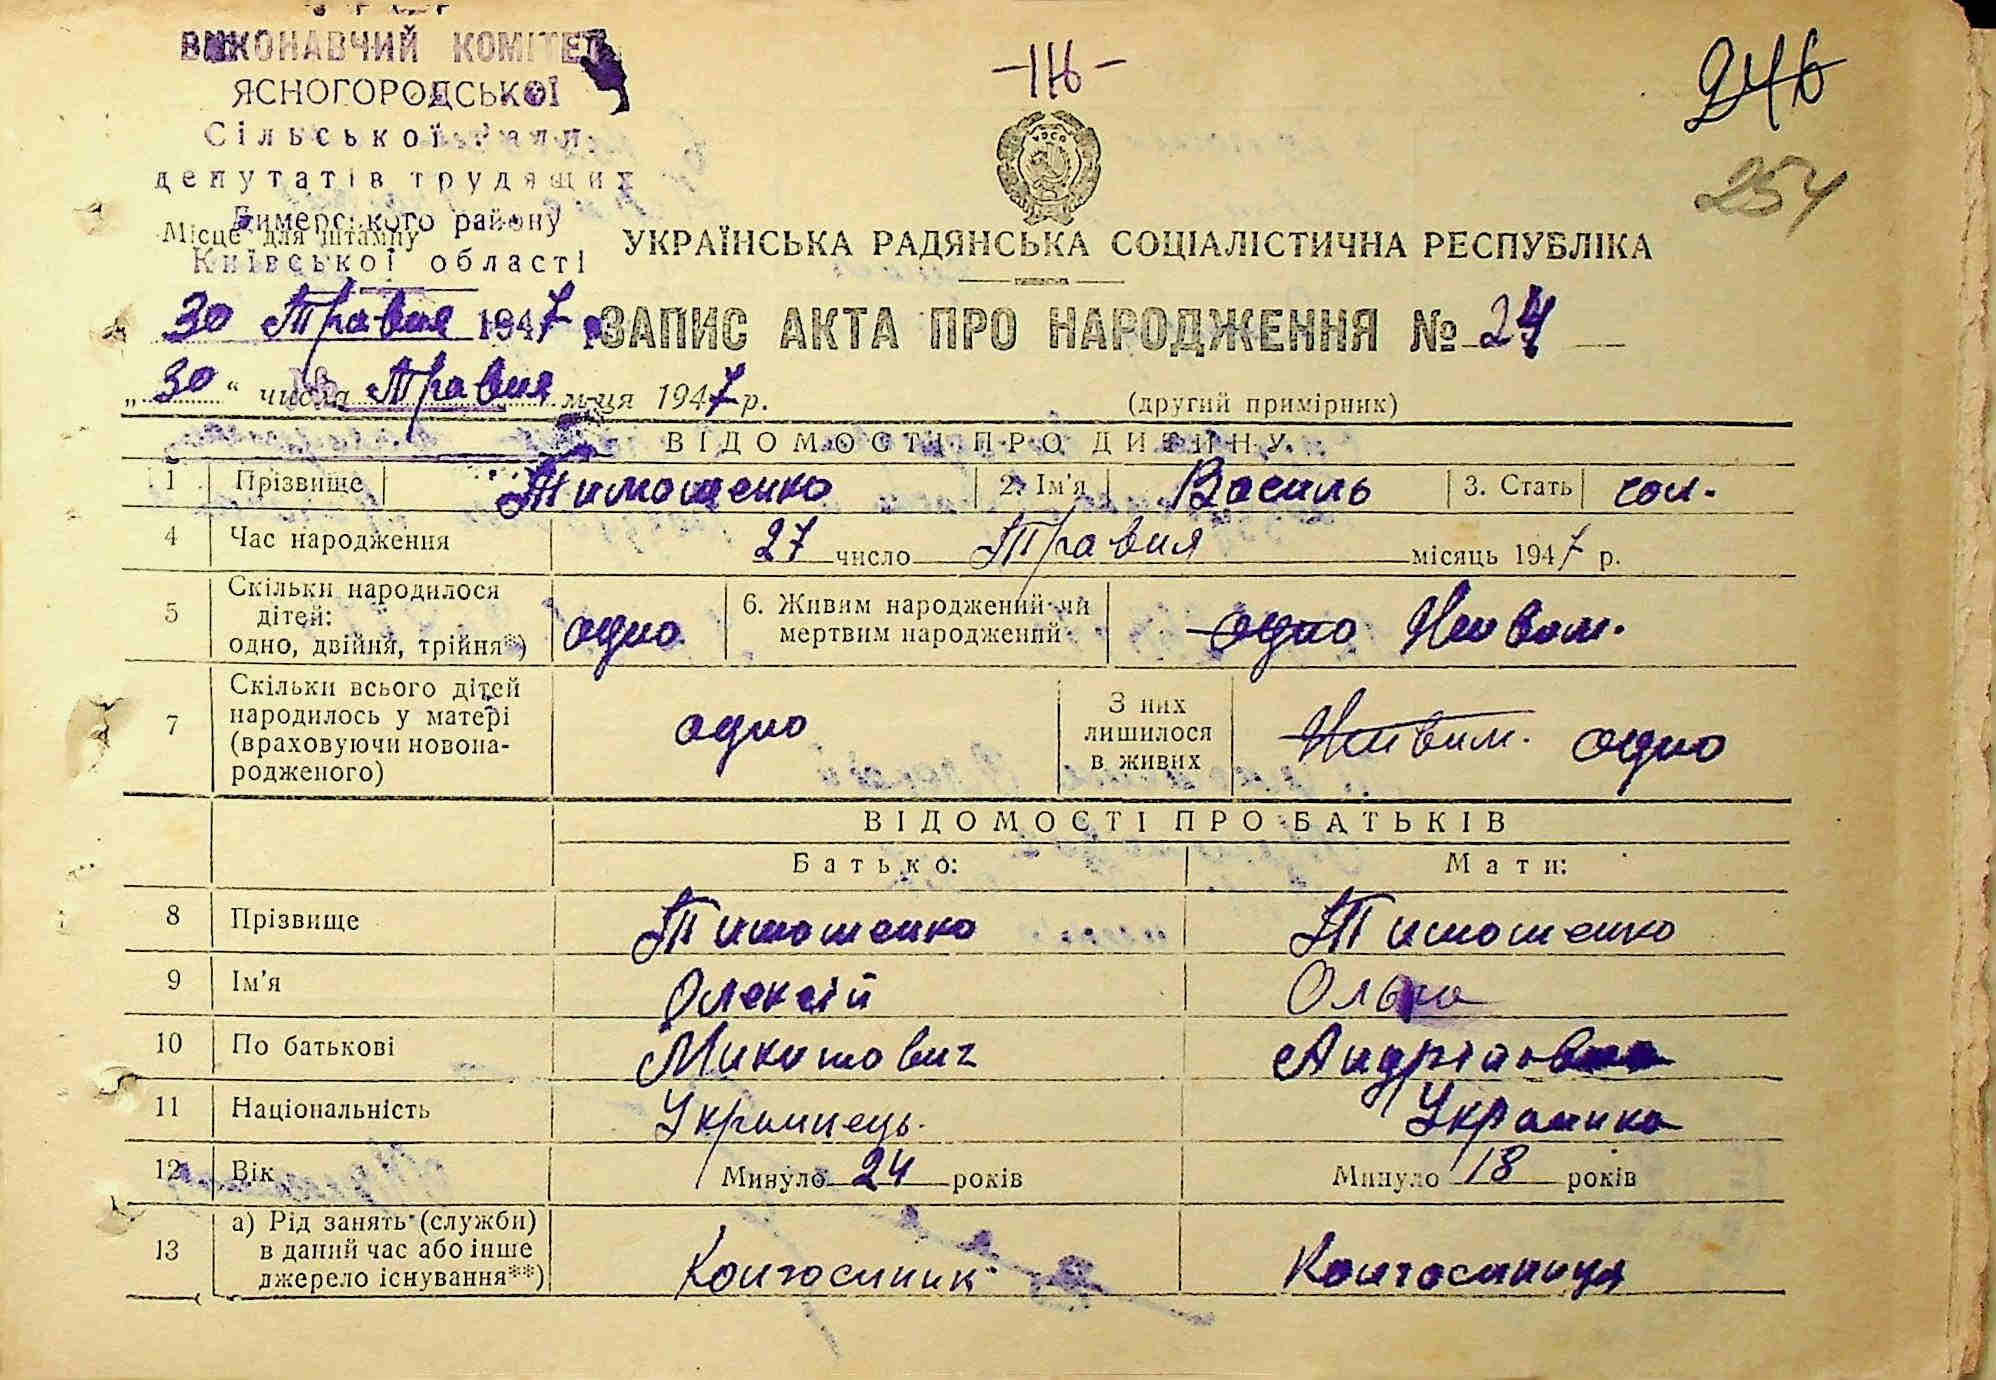 УРСР
ВИКОНАВЧИЙ КОМІТЕТ
ЯСНОГОРОДСЬКОЇ
Сільської Ради
депутатів трудящих
Димерського району
Місце для штампу
Київської області
-116-
246
254
УКРАЇНСЬКА РАДЯНСЬКА СОЦІАЛІСТИЧНА РЕСПУБЛІКА
30 Травня 1947 р.
ЗАПИС АКТА ПРО НАРОДЖЕННЯ № 24
„30“ числа Травня м-ця 1947 р.
(другий примірник)
ВІДОМОСТІ ПРО ДИТИНУ
1 Прізвище Тимошенко 2. Ім'я Василь 3. Стать чол.
4 Час народження 27 число Травня місяць 1947 р.
5 Скільки народилося дітей: одно, двійня, трійня*) одно 6. Живим народжений чи мертвим народжений одно Живим.
7 Скільки всього дітей народилось у матері (враховуючи новонародженого) одно З них лишилося в живих Живим. одно
ВІДОМОСТІ ПРО БАТЬКІВ
Батько: Мати:
8 Прізвище Тимошенко Тимошенко
9 Ім'я Олексій Ольга
10 По батькові Микитович Андріївна
11 Національність Українець. Українка
12 Вік Минуло 24 років Минуло 18 років
13 а) Рід занять (служби) в даний час або інше джерело існування**) Колгоспник Колгоспниця